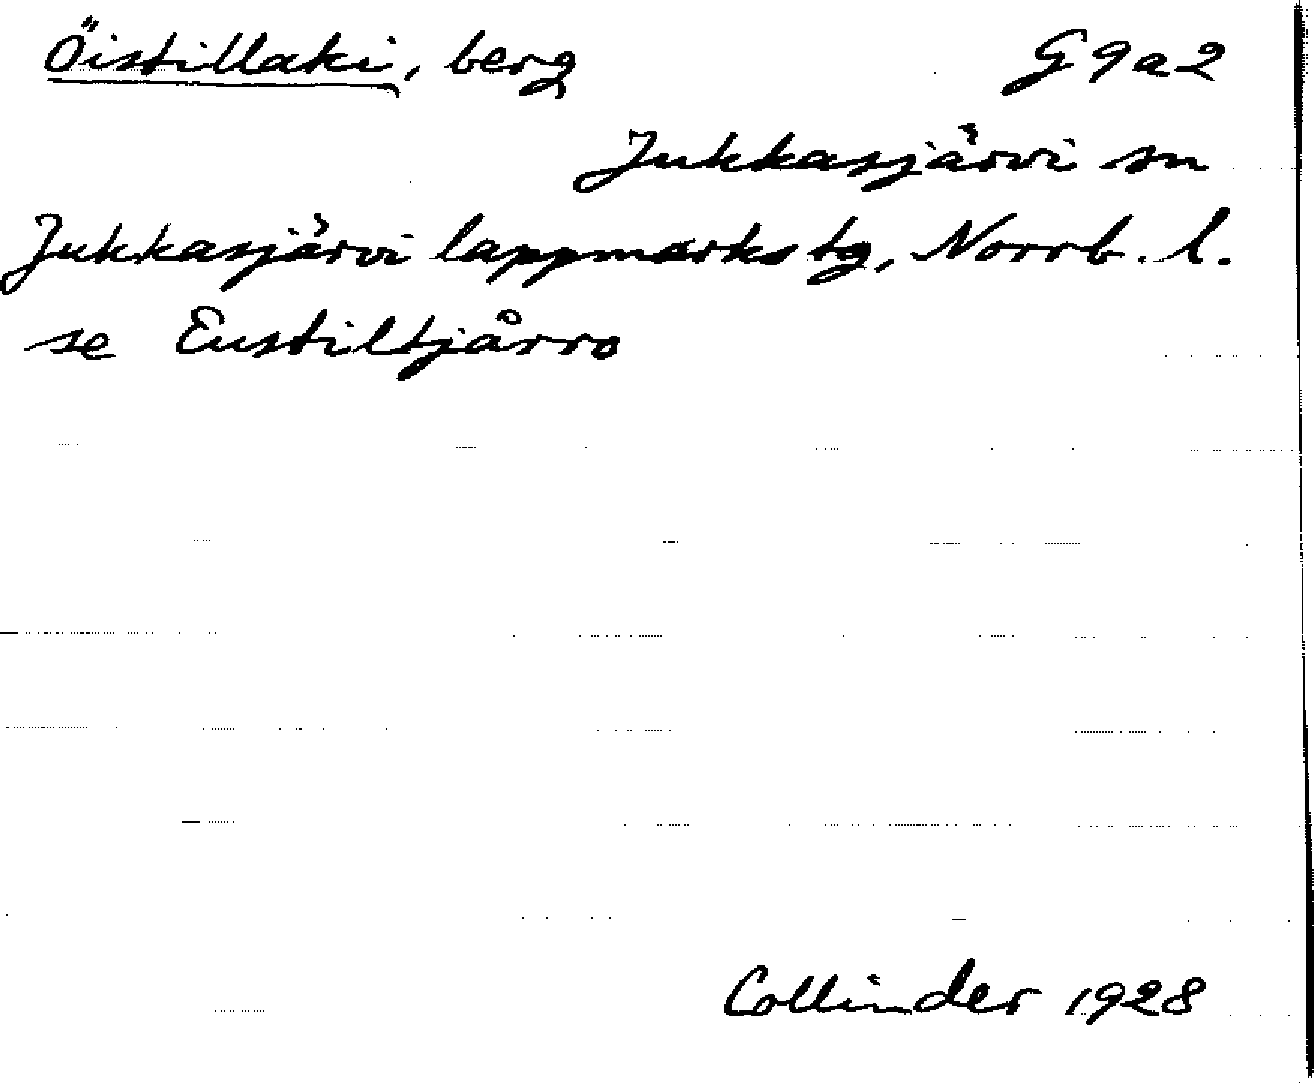 Öistillaki, berg G9a2
Jukkasjärvi sn
Jukkasjärvi lappmarks tg, Norrb. l.
se Eustiltjårro
Collinder 1928